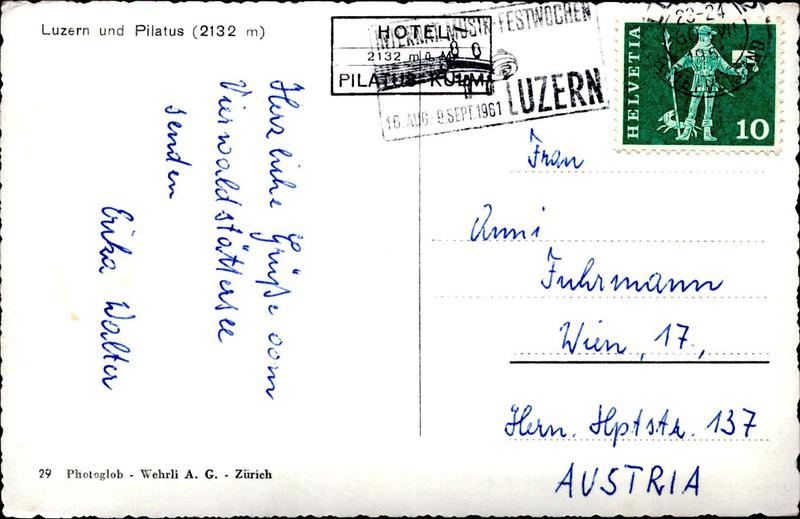 Luzern und Pilatus (2132 m)
HOTEL
2132 m ü. M.
PILATUS-KULM
INTERNAT. MUSIK FESTWOCHEN
LUZERN
16. AUG.-9. SEPT. 1961
23-24
HELVETIA
10
Herzliche Grüße vom
Vierwaldstättersee
senden
Erika Walter
Frau
Anni
Fuhrmann
Wien, 17.,
Hern. Hptstr. 137
AUSTRIA
29 Photoglob - Wehrli A. G. - Zürich